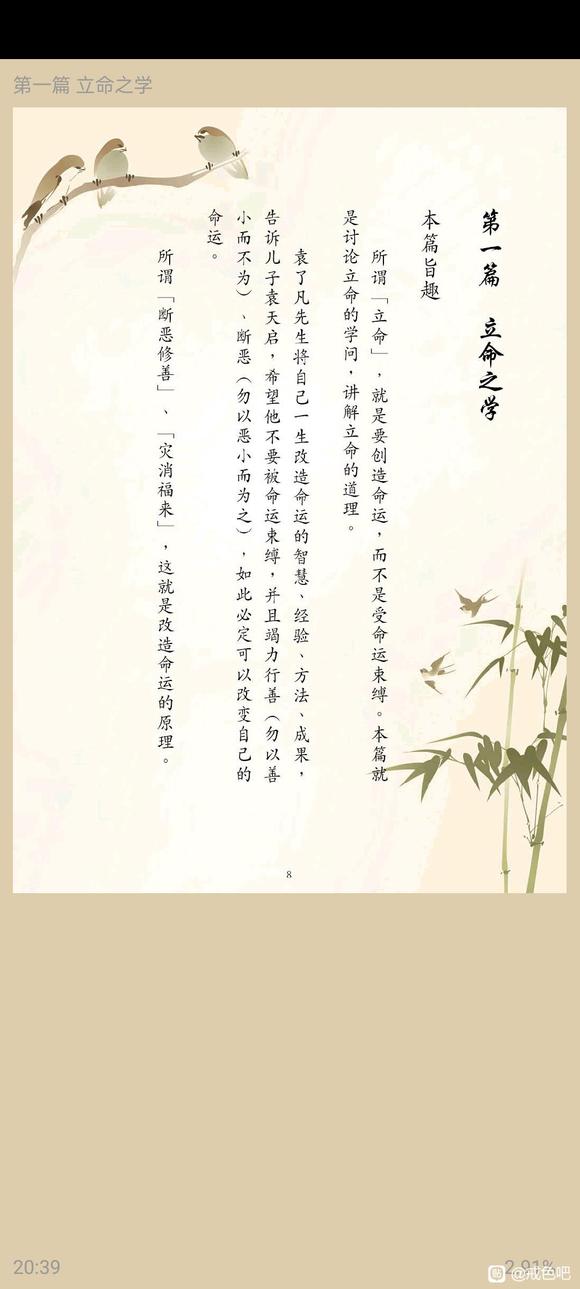 第一篇 立命之学
第一篇 立命之学
本篇旨趣
所谓「立命」，就是要创造命运，而不是受命运束缚。本篇就
是讨论立命的学问，讲解立命的道理。
袁了凡先生将自己一生改造命运的智慧、经验、方法、成果，
告诉儿子袁天启，希望他不要被命运束缚，并且竭力行善（勿以善
小而不为）、断恶（勿以恶小而为之），如此必定可以改变自己的
命运。
所谓「断恶修善」、「灾消福来」，这就是改造命运的原理。
8
20:39
2.91%
贴 @戒色吧